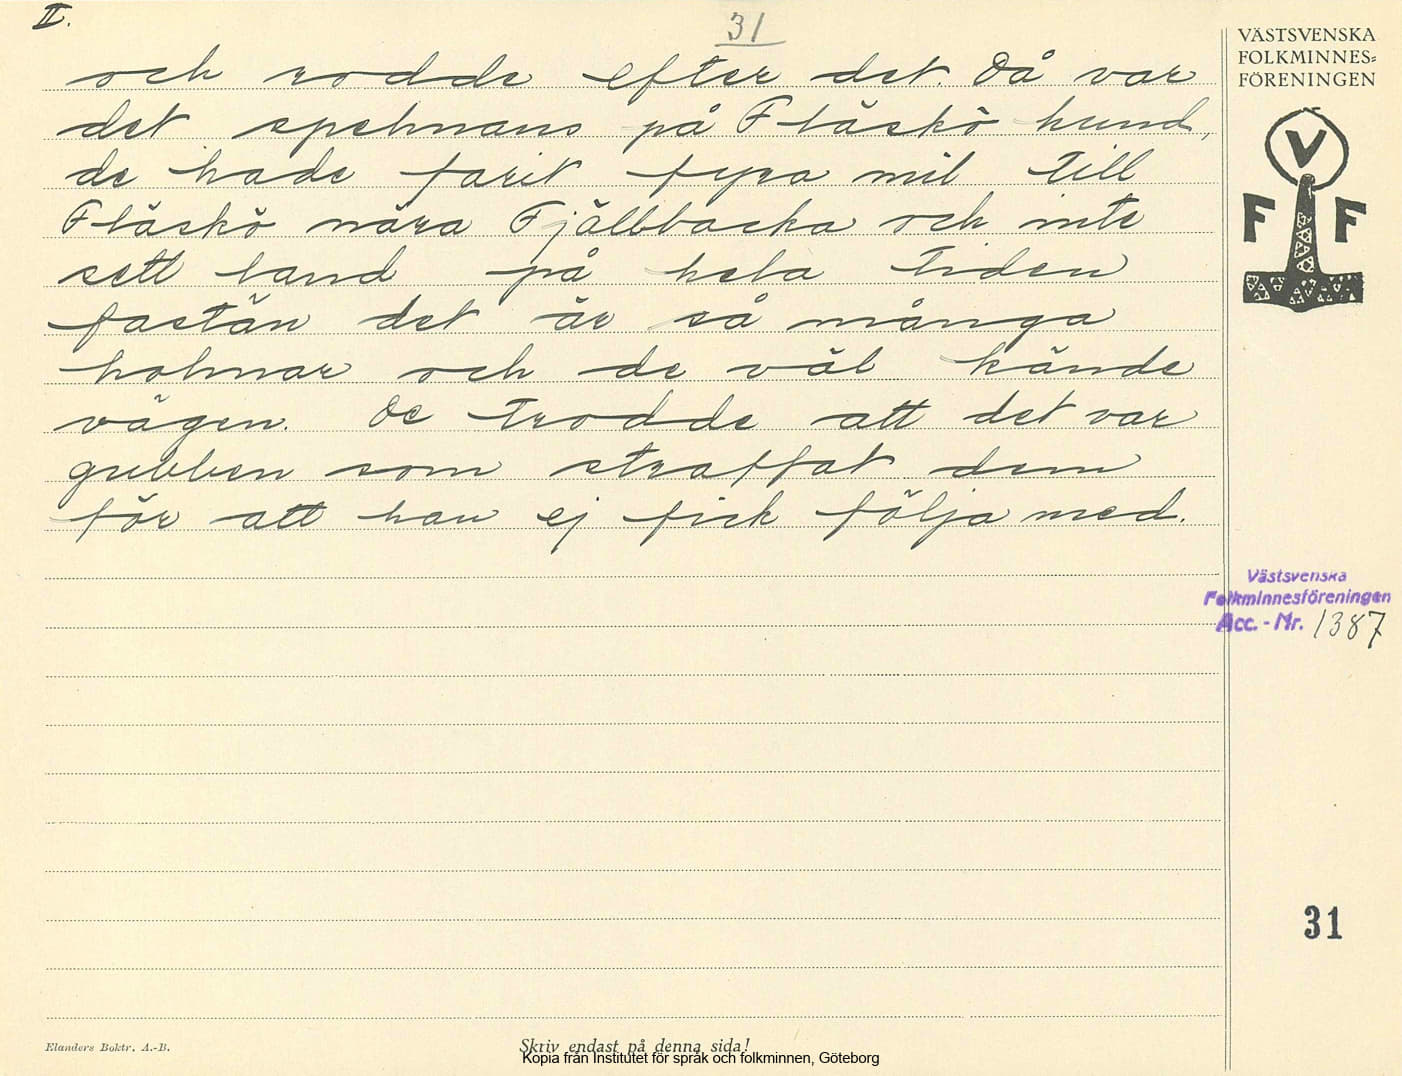 II.
31
och rodde efter det. Då var
det spelmans på Fläskö hund,
de hade farit fyra mil till
Fläskö nära Fjällbacka och inte
sett land på hela tiden
fastän det är så många
holmar och de väl kände
vägen. De trodde att det var
gubben som straffat dem
för att han ej fick följa med.
VÄSTSVENSKA
FOLKMINNES=
FÖRENINGEN
V
F F
Västsvenska
Folkminnesföreningen
Acc. - Nr. 1387
31
Elanders Boktr. A.-B.
Skriv endast på denna sida!
Kopia från Institutet för språk och folkminnen, Göteborg